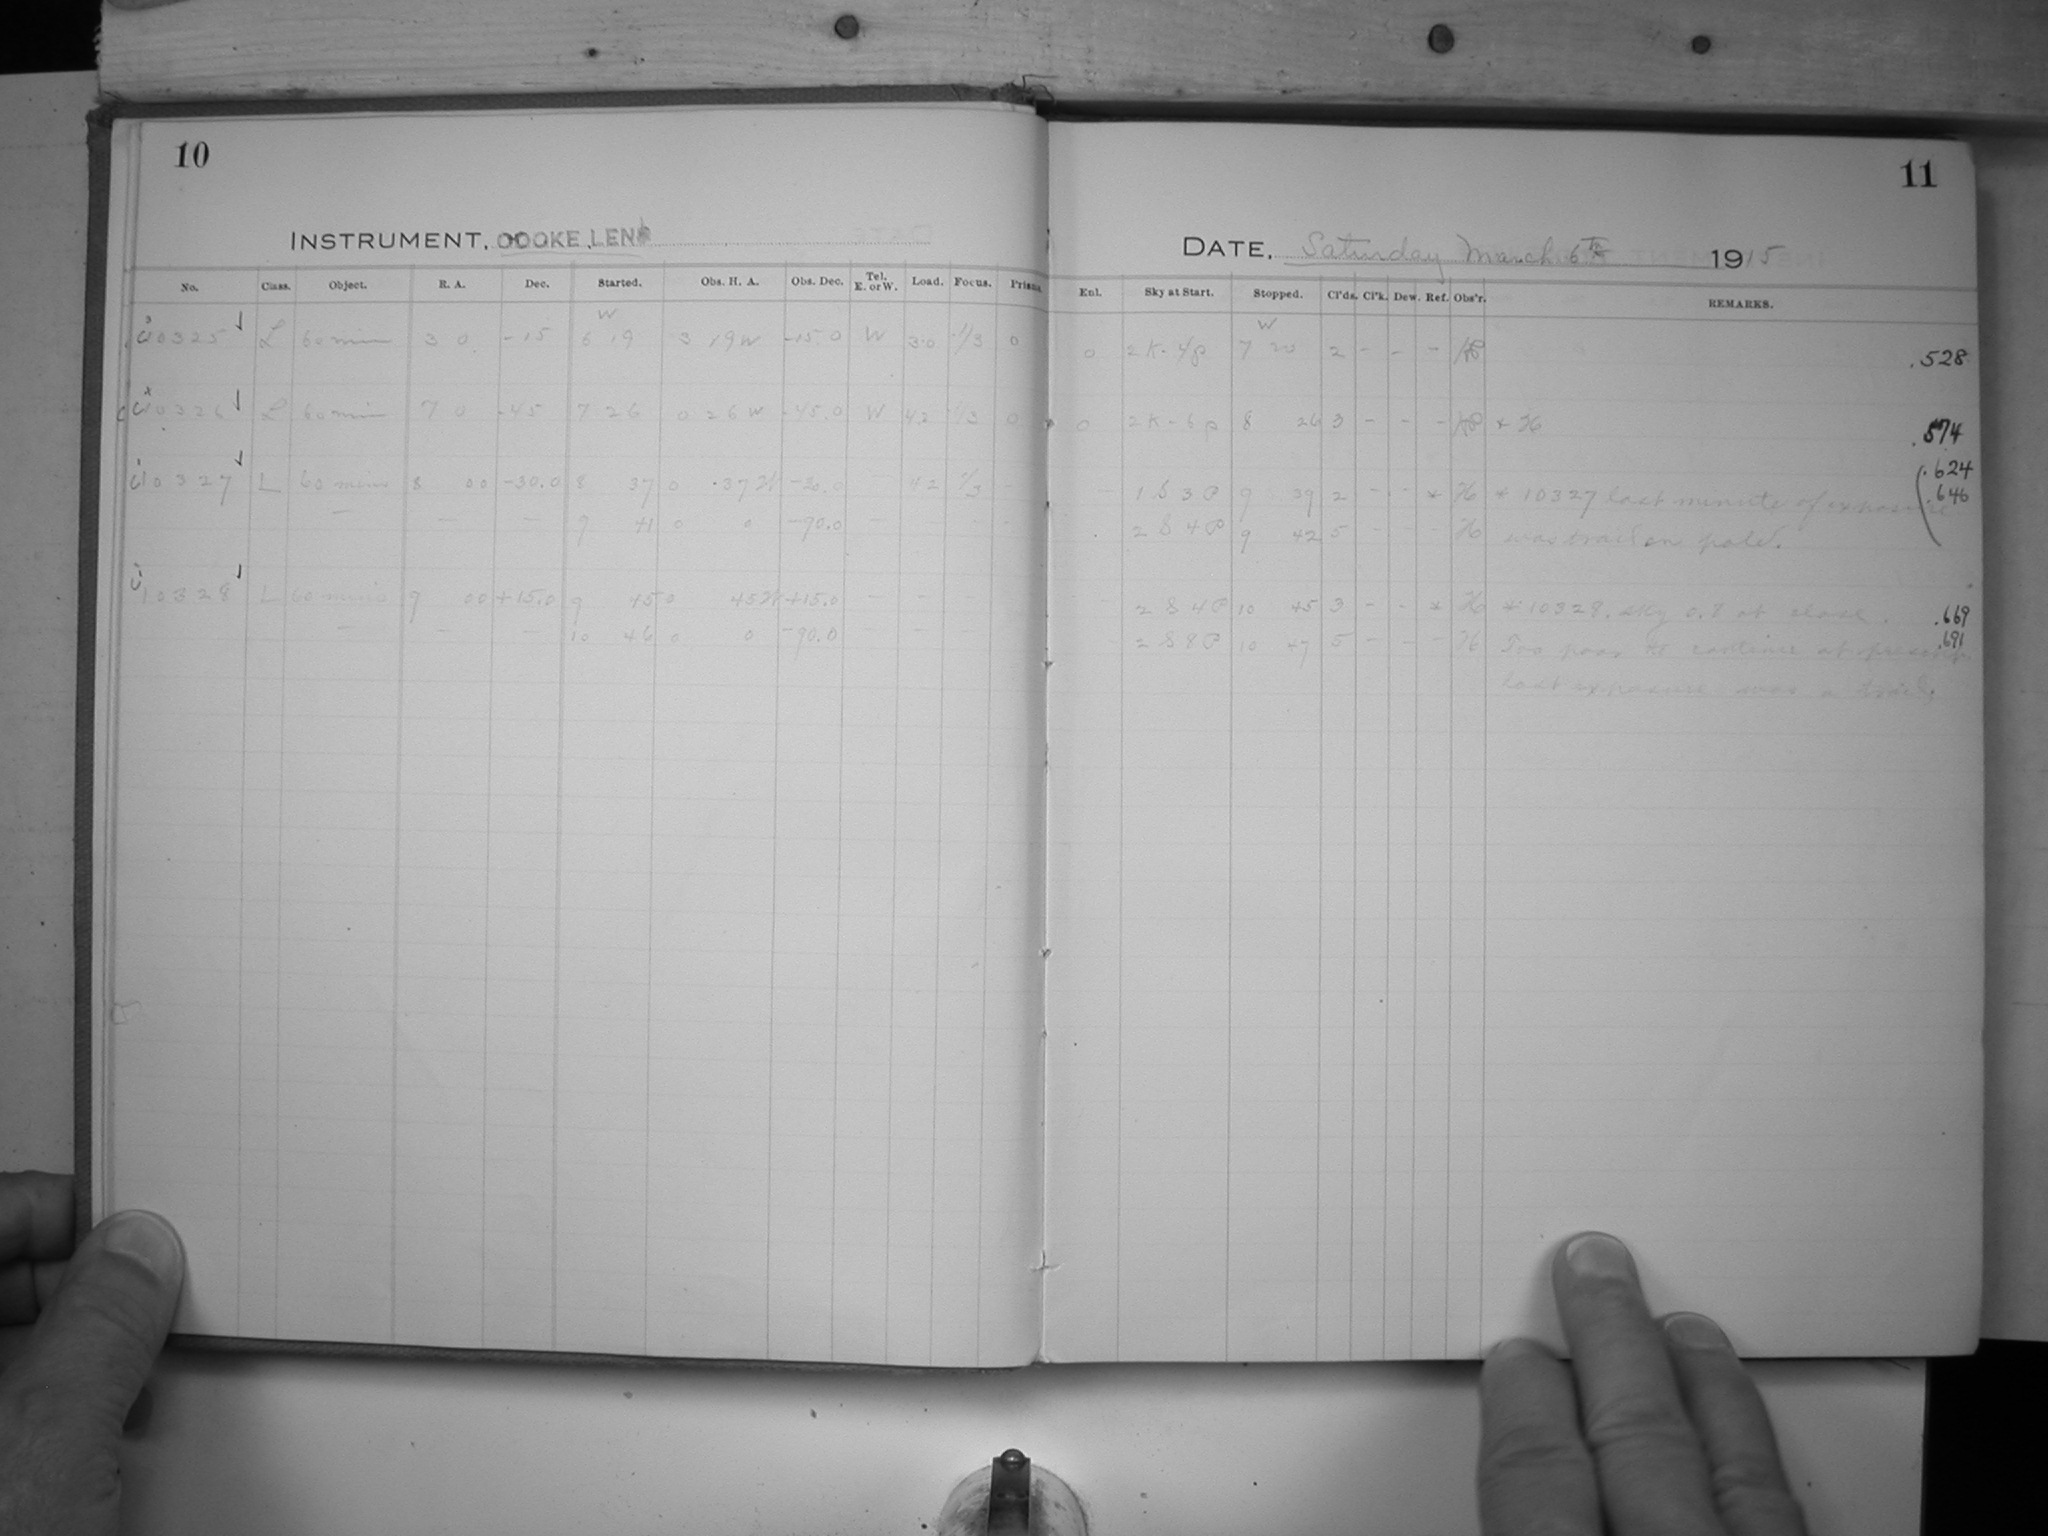 10
INSTRUMENT, COOKE LENS
No. Class. Object. R. A. Dec. Started. Obs. H. A. Obs. Dec. Tel. E. or W. Load. Focus. Prisms
W
10325 L 60 min 3 0 -15 6 19 3 19 W -15.0 W 3.0 1/3 0
10326 L 60 min 7 0 -45 7 26 0 26 W -45.0 W 42 1/3 0
10327 L 60 mins 8 00 -30.0 8 37 0 .37 W -30.0 - 42 1/3 -
- - - 9 41 0 0 -90.0 - - - -
10328 L 60 mins 9 00 +15.0 9 45 0 45 W +15.0 - - -
- - - 10 46 0 0 -90.0 - - -
11
DATE, Saturday March 6th 1915
Enl. Sky at Start. Stopped. Cl'ds. Cl'k. Dew. Ref. Obs'r. REMARKS.
W
0 2K-4p 7 20 2 - - - .528
0 2K-6p 8 26 3 - - - * H .574
.624
- 1 S 3 P 9 39 2 - - * H * 10327 last minute of exposure .646
2 S 4 P 9 42 5 - - - H was trail on pole.
- 2 S 4 P 10 45 3 - - * H * 10328. sky 0.8 at close. .669
2 S 8 P 10 47 5 - - - H Too poor to continue .691
last exposure was a trail.